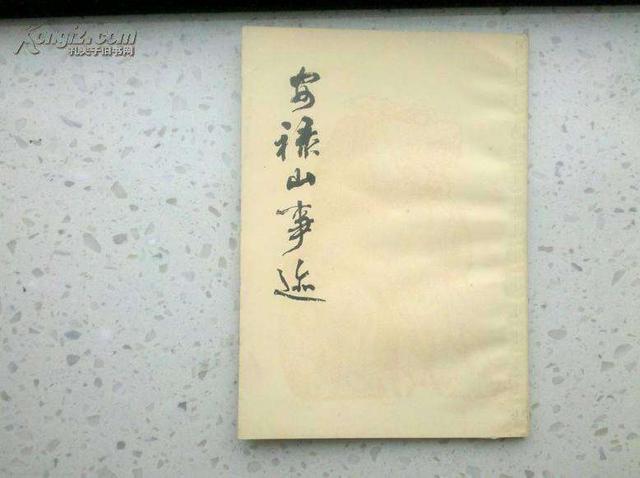 Kongfz.com
孔夫子旧书网
安祿山事迹